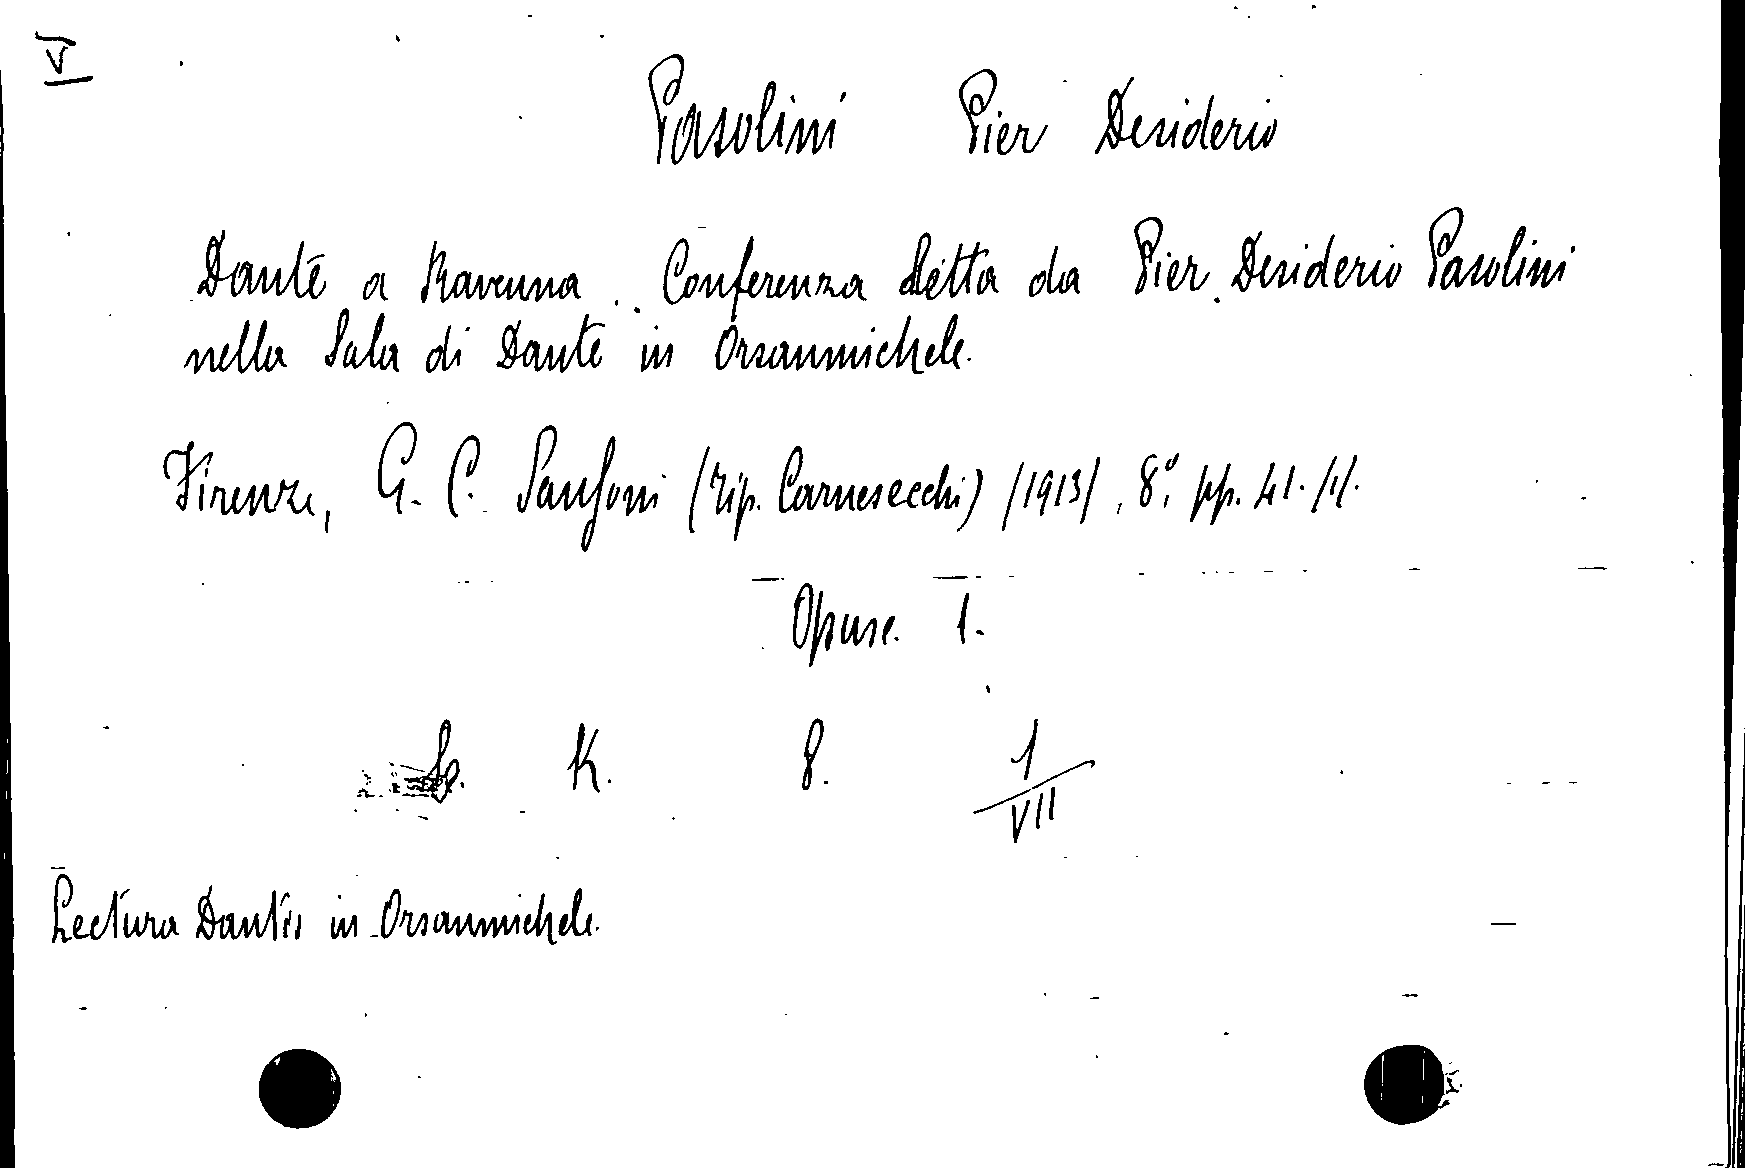 V
Pasolini Pier Desiderio
Dante a Ravenna. Conferenza detta da Pier Desiderio Pasolini
nella Sala di Dante in Orsanmichele.
Firenze, G. C. Sansoni (tip. Carnesecchi) /1913/, 8º, pp. 41. /1/.
Opusc. 1.
K. 8. 1/VII
Lectura Dantis in Orsanmichele.